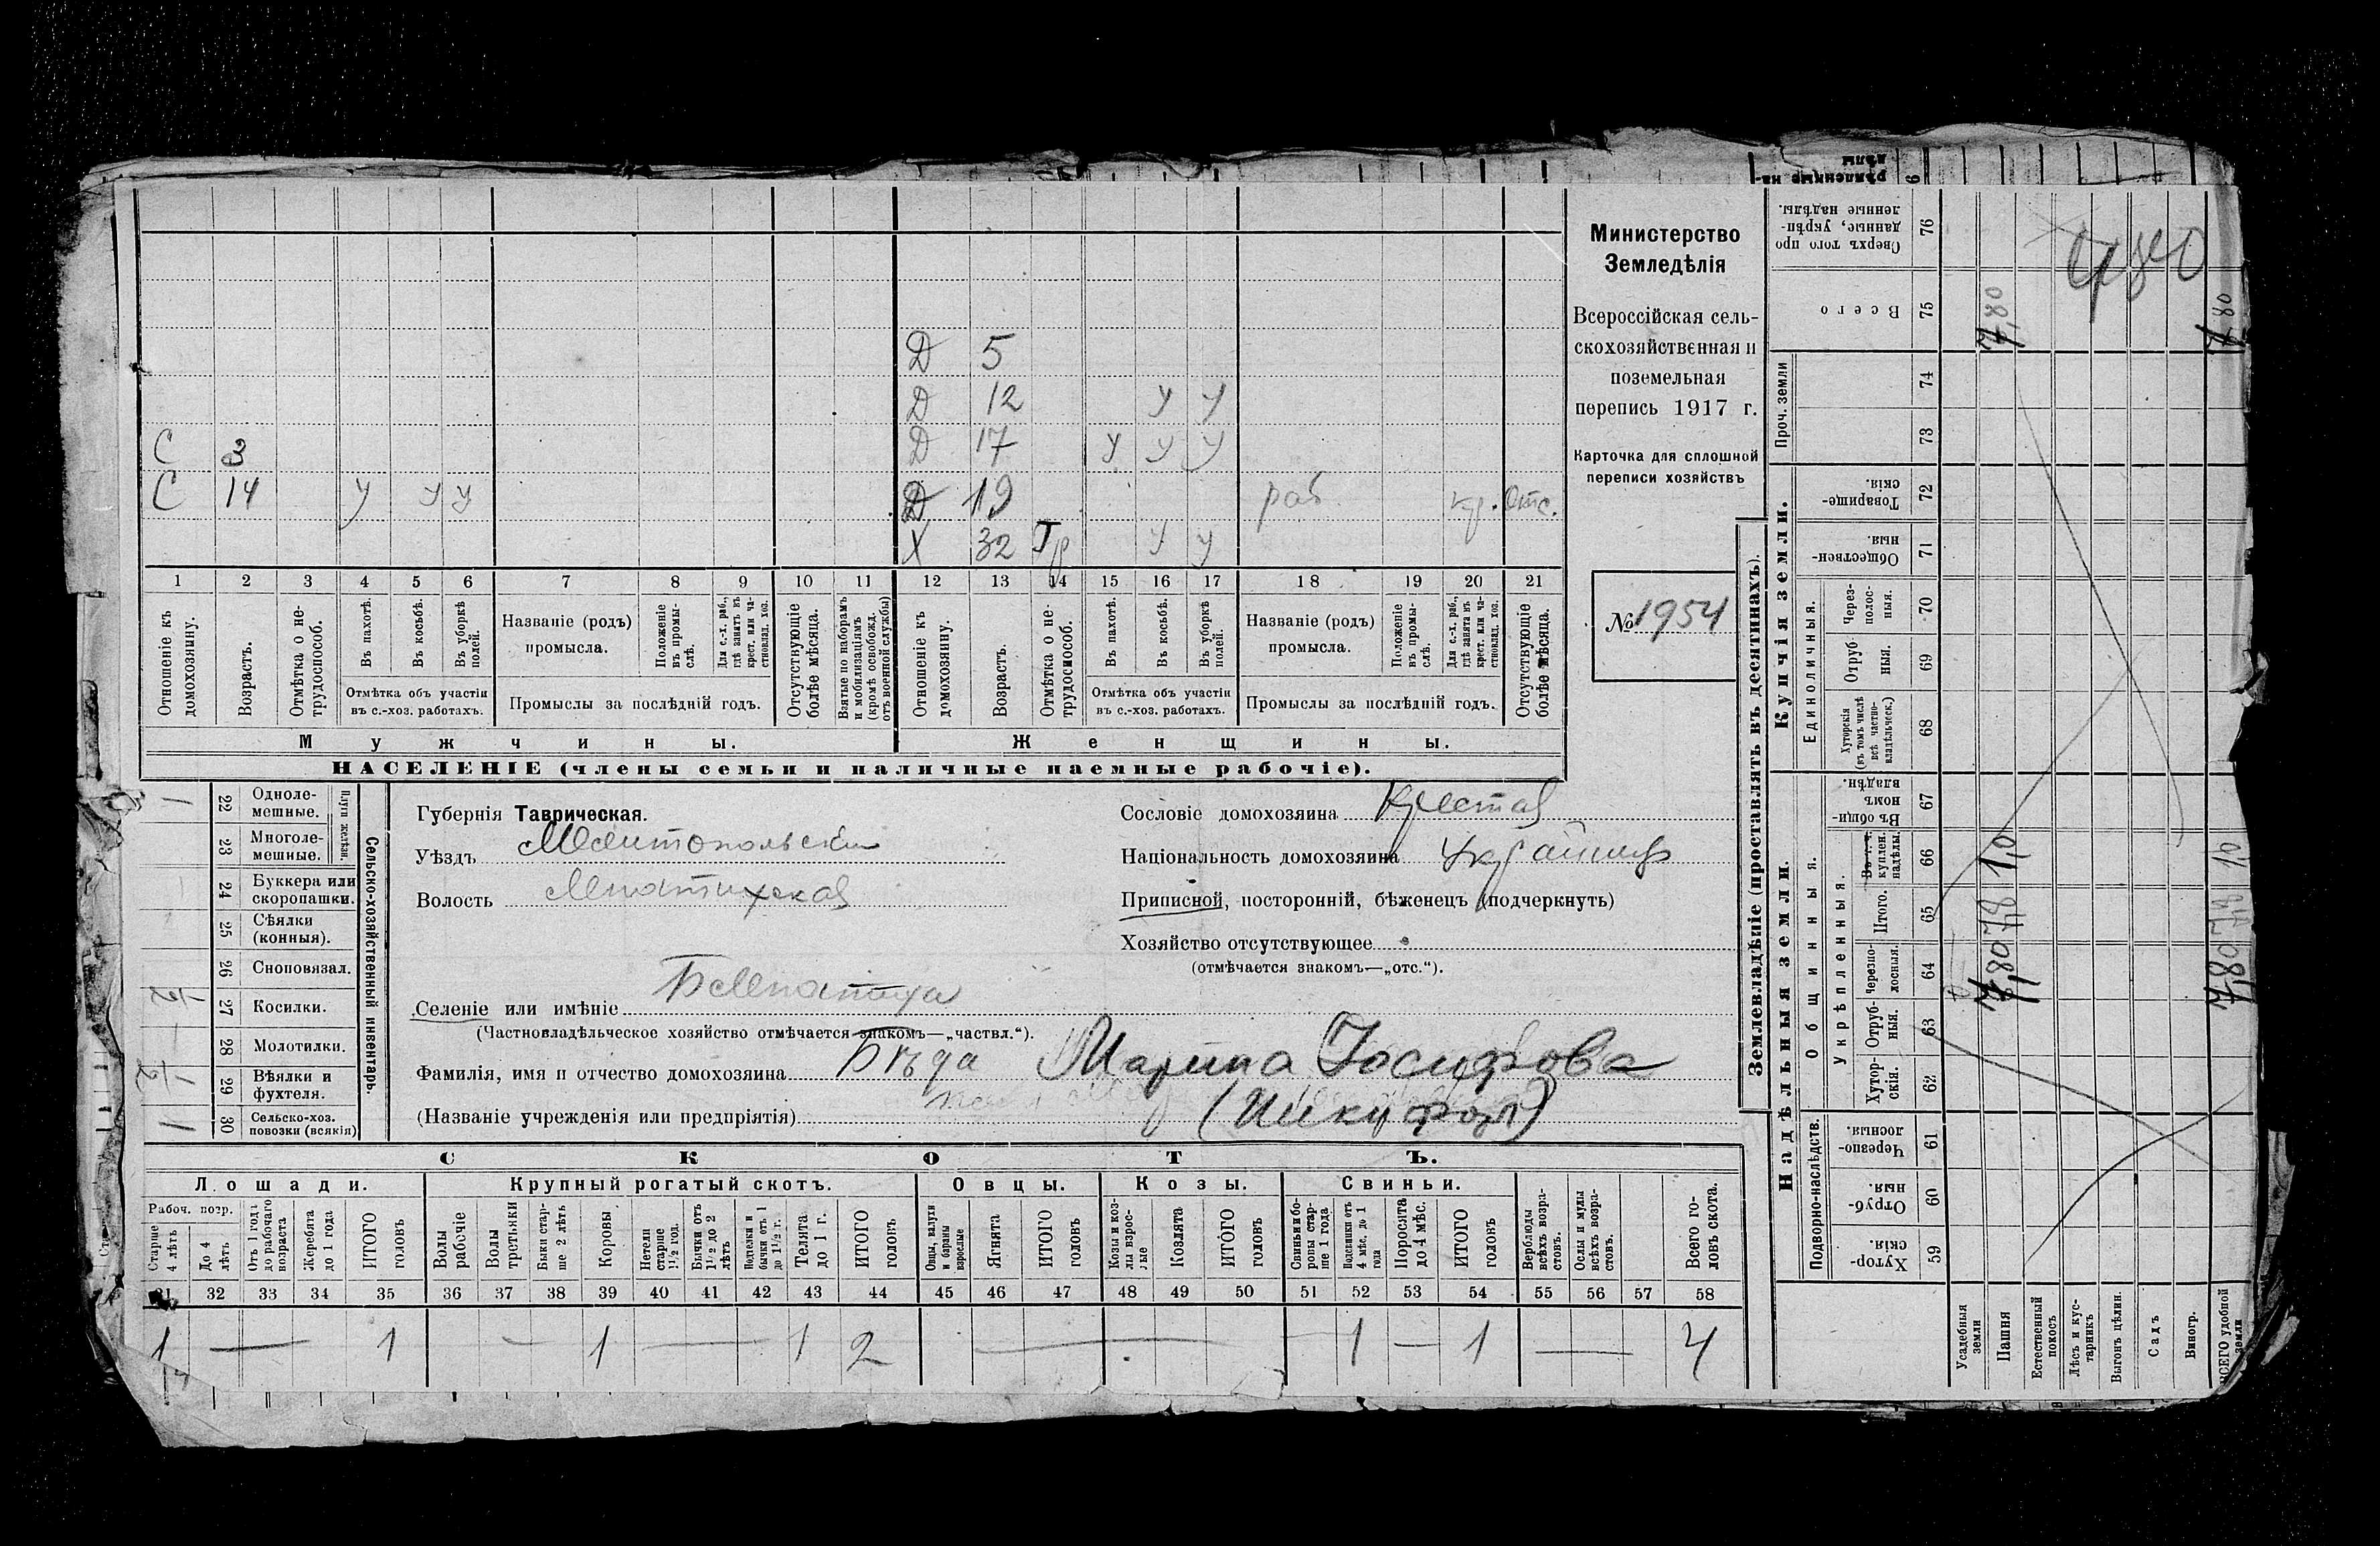 С 3
С 14 у у у
Д 5
Д 12 у у
Д 17 у у у
Д 19 раб кр. Отс.
Х 32 у у
1 2 3 4 5 6 7 8 9 10 11 12 13 14 15 16 17 18 19 20 21
Отношеніе къ домохозяину.
Возрастъ.
Отмѣтка о нетрудоспособ.
Въ пахотѣ.
Въ косьбѣ.
Въ уборкѣ полей.
Отмѣтка объ участіи въ с.-хоз. работахъ.
Названіе (родъ) промысла.
Положеніе въ промыслѣ.
Для с.-х. раб., гдѣ занятъ въ крест. или частновлад. хоз.
Промыслы за послѣдній годъ.
Отсутствующіе болѣе мѣсяца.
Взятые по наборамъ и мобилизаціямъ (кромѣ освобожд. отъ военной службы)
Отношеніе къ домохозяину.
Возрастъ.
Отмѣтка о нетрудоспособ.
Въ пахотѣ.
Въ косьбѣ.
Въ уборкѣ полей.
Отмѣтка объ участіи въ с.-хоз. работахъ.
Названіе (родъ) промысла.
Положеніе въ промыслѣ.
Для с.-х. раб., гдѣ занята въ крест. или частновлад. хоз.
Промыслы за послѣдній годъ.
Отсутствующіе болѣе мѣсяца.
Мужчины.
Женщины.
НАСЕЛЕНІЕ (члены семьи и наличные наемные рабочіе).
Министерство
Земледѣлія
Всероссійская сель-
скохозяйственная и
поземельная
перепись 1917 г.
Карточка для сплошной
переписи хозяйствъ
№ 1954
Сельско-хозяйственный инвентарь.
Плуги желѣзн.
22 Одноле-мешные. 1
23 Многоле-мешные.
24 Буккера или скоропашки.
25 Сѣялки (конныя).
26 Сноповязал.
27 Косилки. 1/2
28 Молотилки.
29 Вѣялки и фухтеля. 1/2
30 Сельско-хоз. повозки (всякія) 1
Губернія Таврическая.
Уѣздъ Мелитопольскій
Волость
Селеніе или имѣніе
(Частновладѣльческое хозяйство отмѣчается знакомъ—„частвл.“).
Фамилія, имя и отчество домохозяина Бѣда Марина Іосифова
(Названіе учрежденія или предпріятія)
Сословіе домохозяина
Національность домохозяина
Приписной, посторонній, бѣженецъ (подчеркнуть)
Хозяйство отсутствующее
(отмѣчается знакомъ—„отс.“).
СКОТЪ.
Лошади.
Крупный рогатый скотъ.
Овцы.
Козы.
Свиньи.
Рабоч. возр.
Старше 4 лѣтъ
До 4 лѣтъ
Отъ 1 года до рабочаго возраста
Жеребята до 1 года
ИТОГО головъ
Волы рабочіе
Волы третьяки
Быки старше 2 лѣтъ
Коровы
Нетели старше 1½ год.
Бычки отъ 1½ до 2 лѣтъ
Подтелки и бычки отъ 1 до 1½ г.
Телята до 1 г.
ИТОГО головъ
Овцы, валухи и бараны взрослые
Ягнята
ИТОГО головъ
Козы и козлы взрослые
Козлята
ИТОГО головъ
Свиньи и боровы старше 1 года
Подсвинки отъ 4 мѣс. до 1 года
Поросята до 4 мѣс.
ИТОГО головъ
Верблюды всѣхъ возрастовъ.
Ослы и мулы всѣхъ возрастовъ.
Всего головъ скота.
31 32 33 34 35 36 37 38 39 40 41 42 43 44 45 46 47 48 49 50 51 52 53 54 55 56 57 58
1 — 1 — 1 — 1 2 — — 1 — 1 — 4
Землевладѣніе (проставлять въ десятинахъ).
Надѣльныя земли.
Купчія земли.
Проч. земли
Подворно-наслѣдств.
Общинныя.
Укрѣпленныя.
Единоличныя.
Сверхъ того проданные, укрѣпленные надѣлы. 76
Всего 75
74
73
Товарищескія. 72
Общественныя. 71
Черезполосныя. 70
Отрубныя. 69
Хуторскія (въ томъ числѣ всѣ частновладѣльческ.) 68
Въ общиномъ владѣн. 67
Въ т. ч. куплен. надѣлы 66
Итого. 65
Черезполосныя. 64
Отрубныя. 63
Хуторскія. 62
Черезполосныя. 61
Отрубныя. 60
Хуторскія. 59
Усадебныя земли
Пашня
Естественный покосъ
Лѣсъ и кустарникъ
Выгонъ цѣлин.
Садъ
Виногр.
ВСЕГО удобной земли